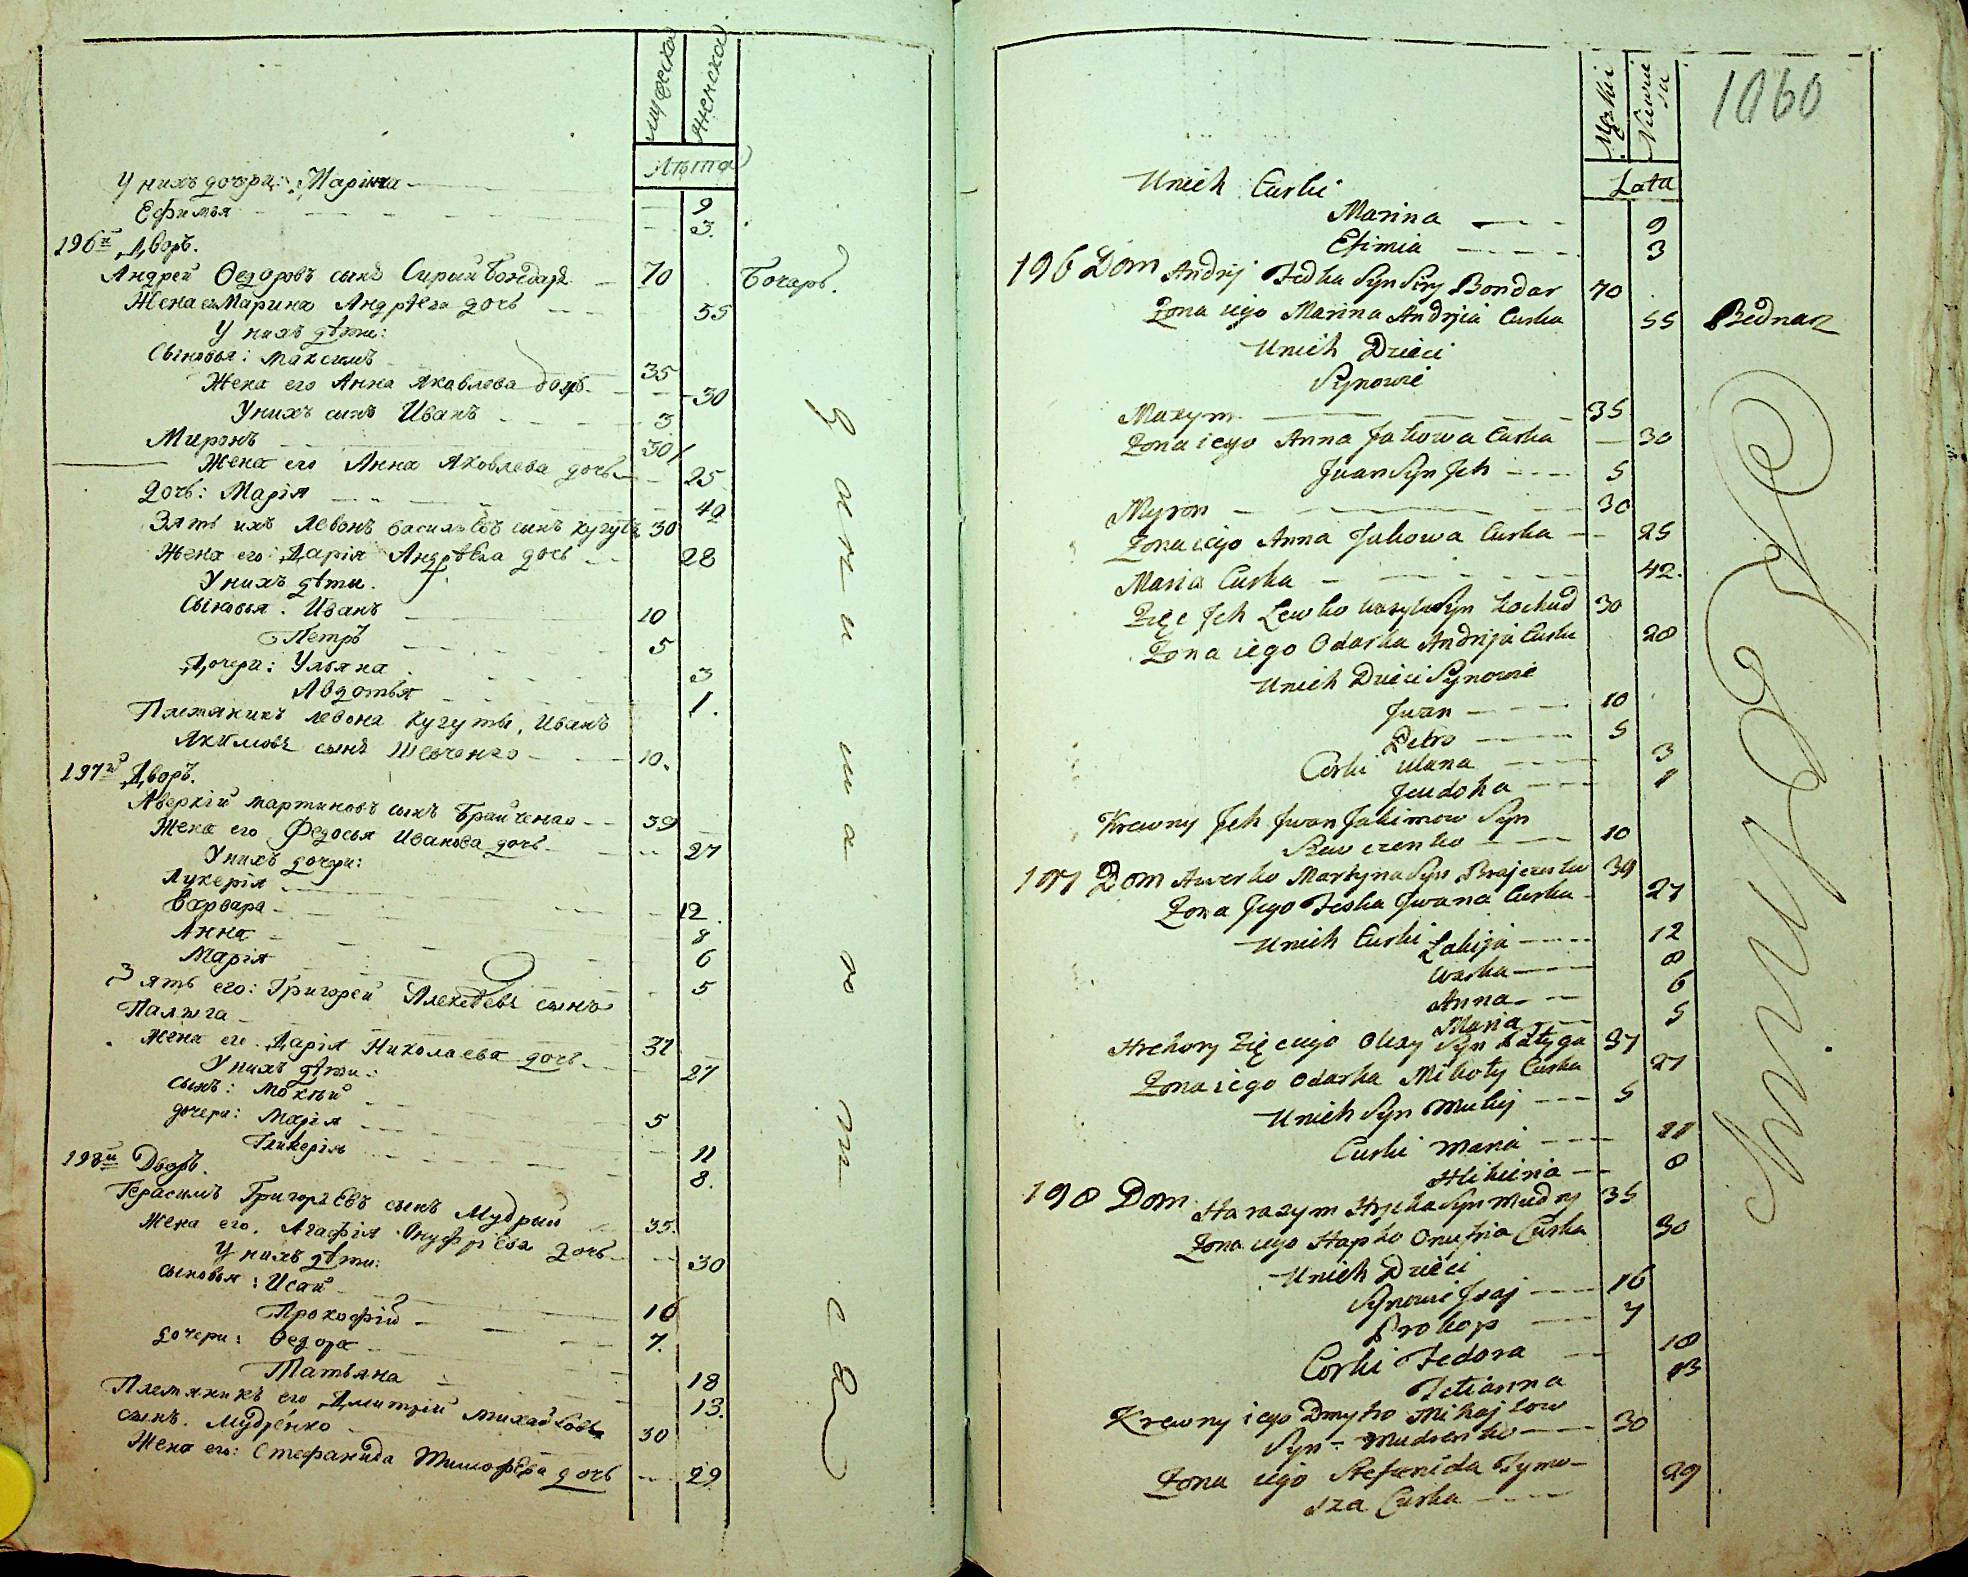 мужеска
женска
Лѣта
У нихъ дочери: Марина 9
Ефимья 3.
196й Дворъ.
Андрей Ѳедоровъ сынъ Сирый Бондарь 70 Бочаръ.
Жена ег Марина Андрѣева дочь 55
У нихъ дѣти:
Сыновья: Максимъ 35
Жена его Анна Яковлева дочь 30
У нихъ сынъ Иванъ 3
Миронъ 30
Жена его Анна Яковлева дочь 25
Дочь: Марія 42
Зять ихъ Левонъ Васильевъ сынъ Кугутъ 30
Жена его: Дарія Андрѣева дочь 28
У нихъ дѣти.
Сыновья: Иванъ 10
Петръ 5
Дочери: Ульяна 3
Авдотья 1.
Племяникъ Левона Кугуты, Иванъ
Якимовъ сынъ Шевченко 10.
197й Дворъ.
Аверкій Мартиновъ сынъ Брайченко 39
Жена его Федосья Иванова дочь 27
У нихъ дочери:
Лукерія 12.
Варвара 8
Анна 6
Марія 5
Зять его: Григорей Алексѣевъ сынъ
Палыга 37
Жена его Дарія Николаева дочь 27
У нихъ дѣти:
Сынъ: Мокѣй 5
дочери: Марія 11
Гликерія 8.
198й Дворъ.
Герасимъ Григорьевъ сынъ Мудрый 35.
Жена его. Агафія Онуфріева дочь 30
У нихъ дѣти:
Сыновья: Исай 16
Прокофій 7.
дочери: Ѳедора 18
Татьяна 13.
Племяникъ его Дмитрій Михайловъ
сынъ. Мудренко 30
Жена его: Стефанида Тимофѣева дочь 29
1060
Męzki
Lata
Unich Curki
Marina 9
Efimia 3
196 Dom Andrij Fedka Syn Siry Bondar 70
Żona iego Marina Andrija Curka 55 Bednarz
Unich Dzieci
Synowie
Maxym 35
Żona iego Anna Jakowa Curka 30
Jwan Syn Jch 5
Myron 30
Żona iego Anna Jakowa Curka 25
Maria Curka 42.
Zięc Jch Lewko Wasyla Syn Kochud 30
Żona iego Odarka Andrija Curka 28
Unich Dzieci Synowie
Jwan 10
Petro 5
Corki Ulana 3
Jeudoha 1
Krewny Jch Jwan Jakimow Syn
Szewczenko 10
197 Dom Awerko Martyna Syn Brajczenko 39
Żona Jego Feska Jwana Curka 27
Unich Curki Lukija 12
Warka 8
Anna 6
Maria 5
Hrehory Zięc iego Olexy Syn Pałyga 37
Żona iego Odarka Mikoły Curka 27
Unich Syn Mukij 5
Curki Maria 11
Hlikiria 8
198 Dom Harazym Hryćka Syn Mudry 35
Żona iego Hapka Onufria Curka 30
Unich Dzieci
Synowie Jsaj 16
Prokop 7
Corki Fedora 18
Tetianna 13
Krewny iego Dmytro Mihajłow
Syn Mudrenko 30
Żona iego Stefanida Tymo-
sza Curka 29